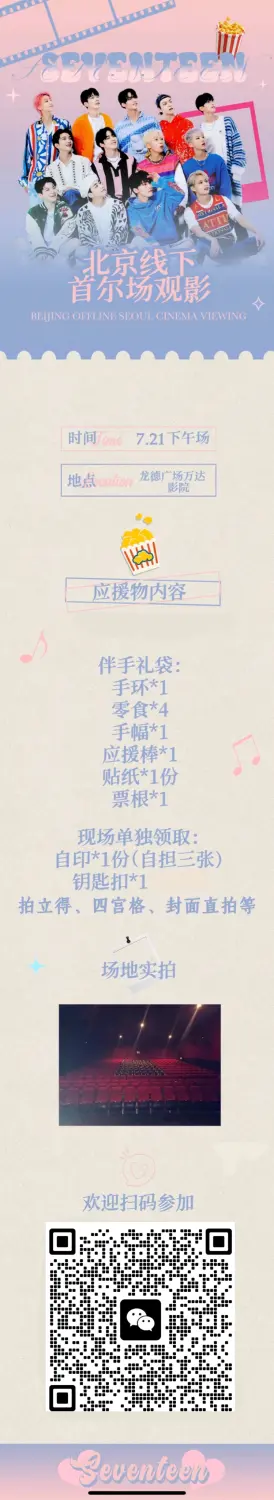 SEVENTEEN
北京线下
首尔场观影
BEIJING OFFLINE SEOUL CINEMA VIEWING
时间 Time 7.21下午场
地点 Location 龙德广场万达
影院
应援物内容
伴手礼袋：
手环*1
零食*4
手幅*1
应援棒*1
贴纸*1份
票根*1
现场单独领取：
自印*1份（自担三张）
钥匙扣*1
拍立得、四宫格、封面直拍等
场地实拍
欢迎扫码参加
Seventeen